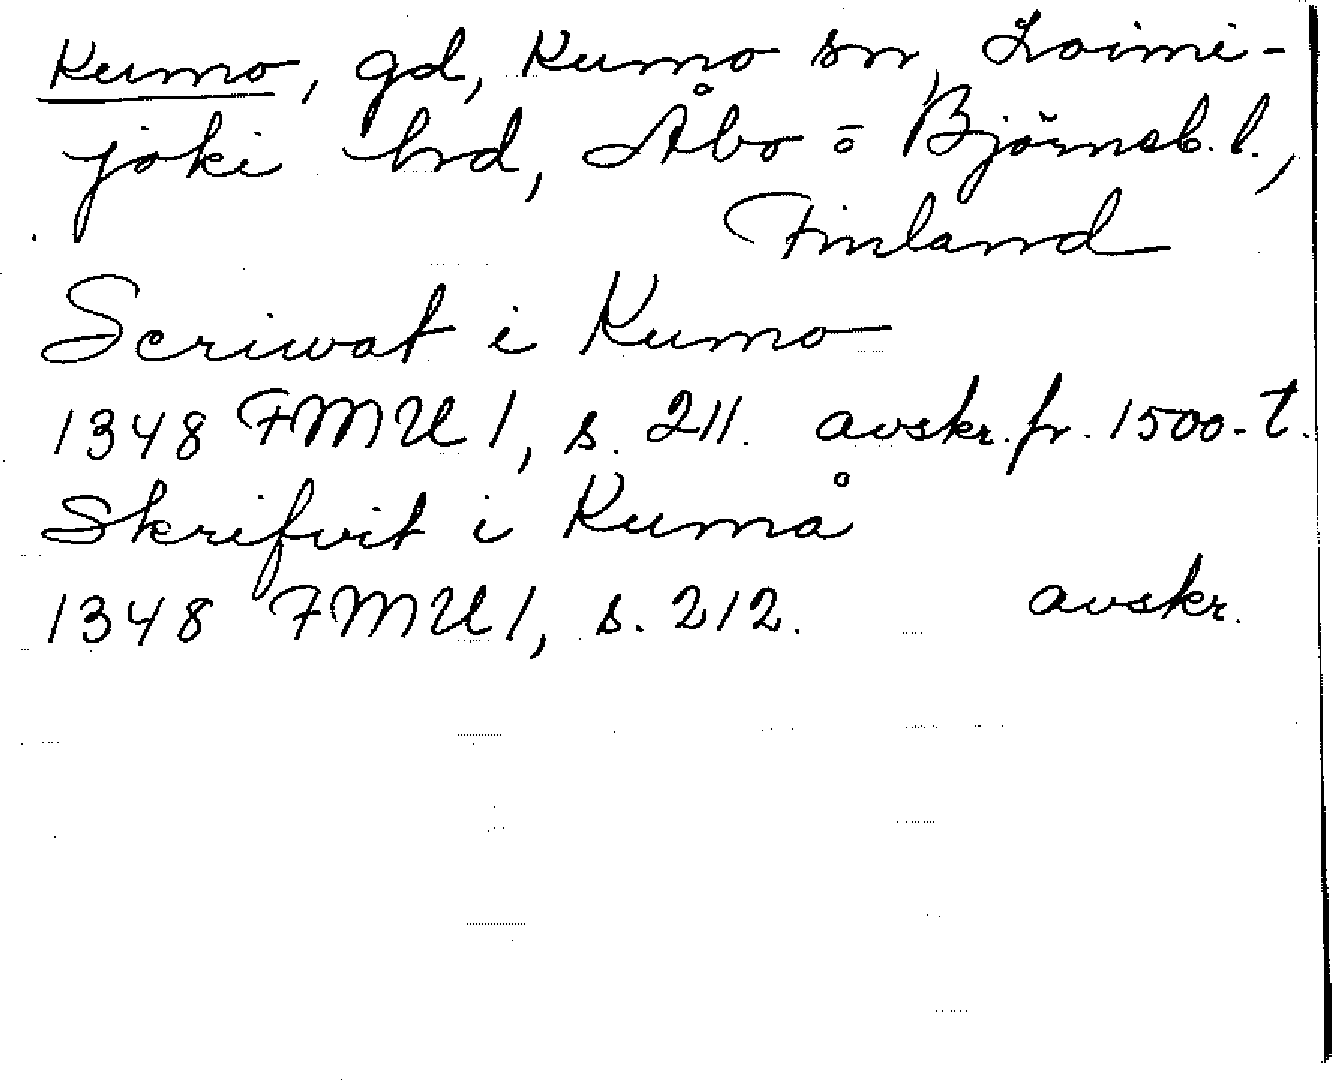 Kumo, gd, Kumo sn, Loimi-
joki hrd, Åbo o Björneb. l.,
Finland
Scriwat i Kumo
1348 FMU 1, s. 211. avskr. fr. 1500-t.
Skrifvit i Kumå
1348 FMU 1, s. 212. avskr.